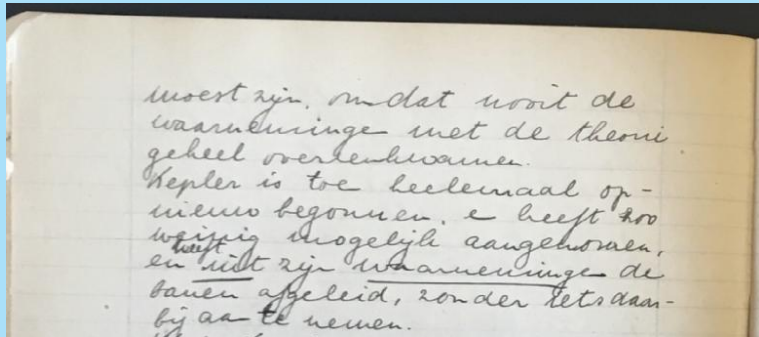 moest zijn, omdat nooit de
waarneminge met de theorie
geheel overeenkwamen.
Kepler is toe heelemaal op-
nieuw begonnen, e heeft zoo
weinig mogelijk aangenomen,
en heeft uit zijn waarneminge de
banen afgeleid, zonder iets daar-
bij aan te nemen.